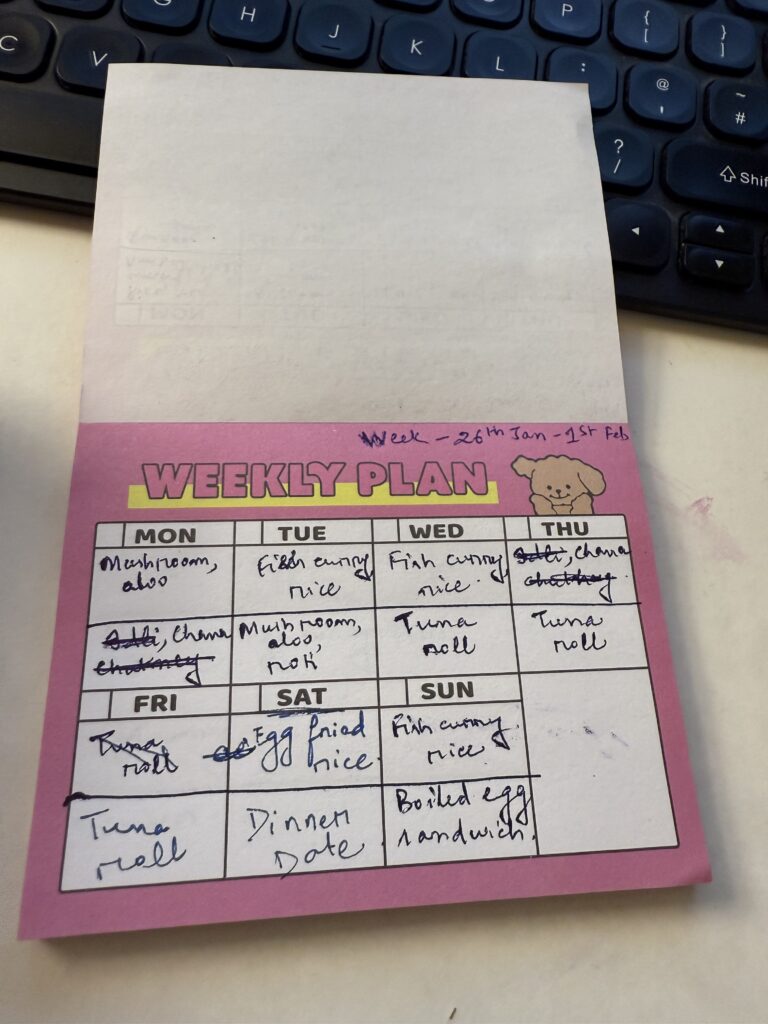 C
V
G
H
J
K
L
P
{
[
}
]
:
;
@
'
~
#
?
/
Shif
Week - 26th Jan - 1st Feb
WEEKLY PLAN
MON
TUE
WED
THU
Mushroom,
aloo
Fish curry
rice
Fish curry,
rice.
Idli, Chana
chutney.
Idli, Chana
Chutney
Mushroom,
aloo,
roti
Tuna
roll
Tuna
roll
FRI
SAT
SUN
Tuna
roll
Egg fried
rice.
Fish curry,
rice
Tuna
roll
Dinner
Date
Boiled egg
sandwich.